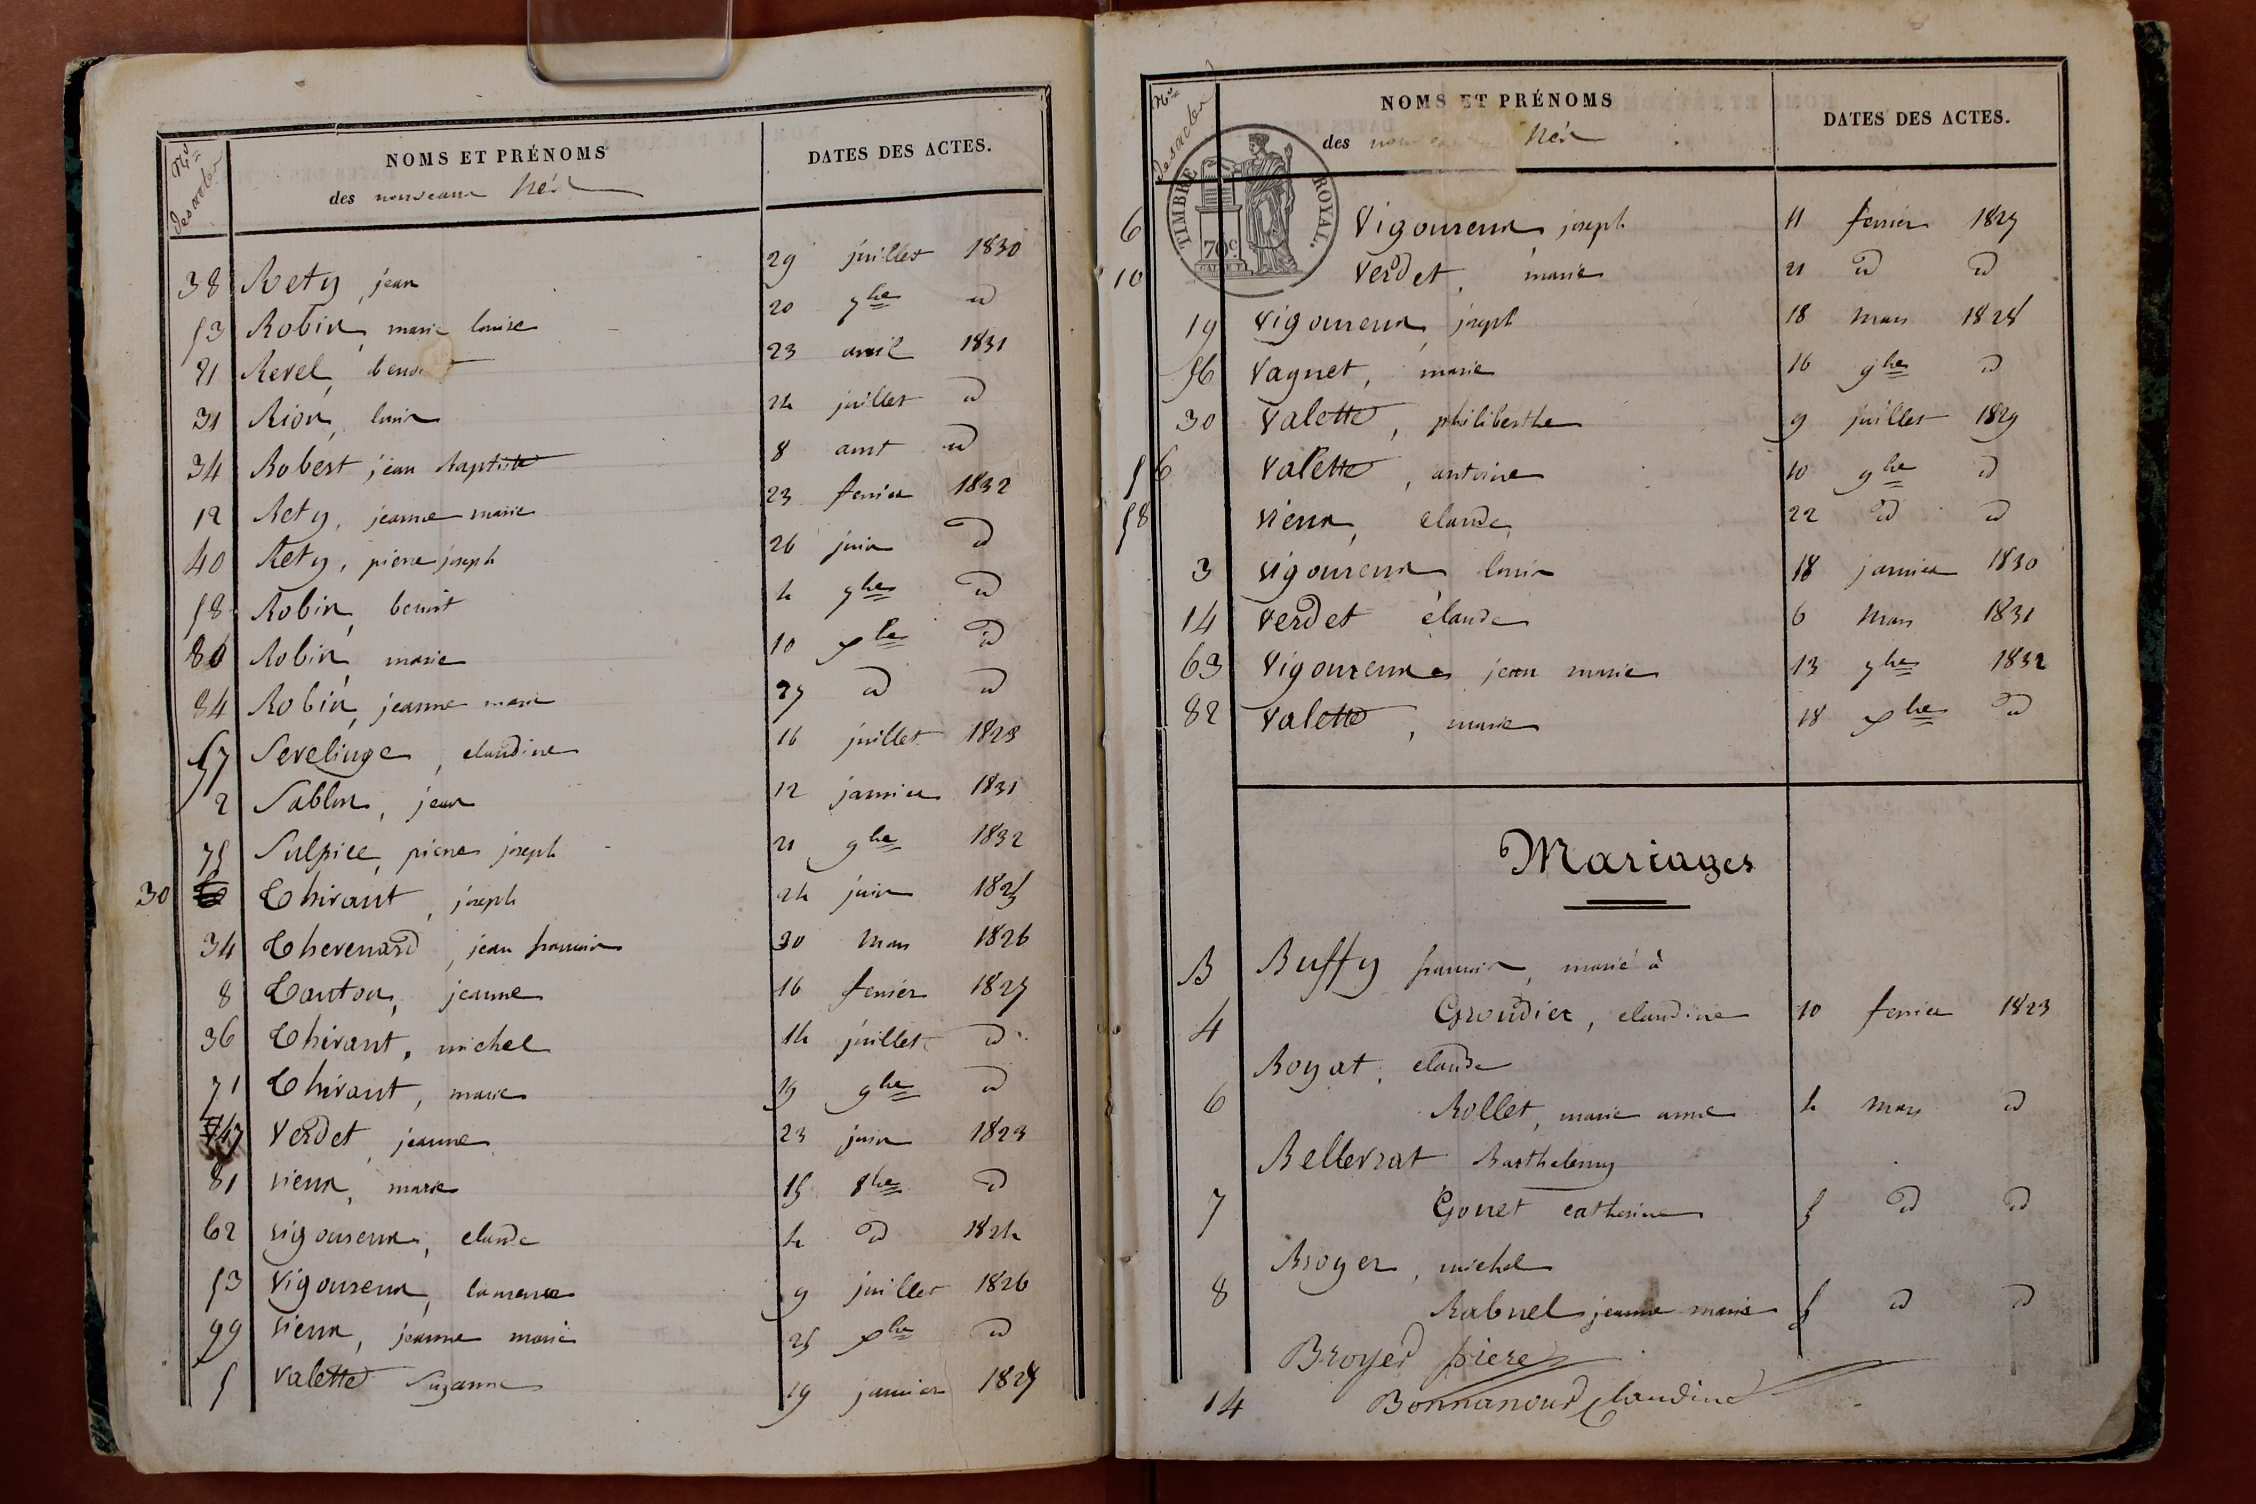 Nos des actes
NOMS ET PRÉNOMS
des nouveaux Nés
DATES DES ACTES.
38 Rety, jean 29 juillet 1830
53 Robin, marie louise 20 7bre id
21 Revel, benoit 23 avril 1831
31 Rion, louis 24 juillet id
34 Robert jean Baptiste 8 aout id
12 Rety, jeanne marie 23 fevrier 1832
40 Rety, pierre joseph 26 juin id
58 Robin, benoit 4 7bre id
80 Robin, marie 10 xbre id
84 Robin, jeanne marie 27 id id
57 Sevelinge, claudine 16 juillet 1823
2 Sablon, jean 12 janvier 1831
75 Sulpice, pierre joseph 21 9bre 1832
30 Thivant, joseph 24 juin 1825
34 Thevenard, jean francois 30 Mars 1826
8 Tanton, jeanne 16 fevrier 1827
36 Thivant, michel 14 juillet id
71 Thivant, marie 19 9bre id
47 Verdet, jeanne 23 juin 1823
81 vieux, marie 15 8bre id
62 vigoureux, claude 4 id 1824
53 Vigoureux, laurence 9 juillet 1826
99 vieux, jeanne marie 25 xbre id
5 Valette Suzanne 19 janvier 1827
Nos des actes
NOMS ET PRÉNOMS
des nouveaux Nés
DATES DES ACTES.
TIMBRE ROYAL.
70c
6 Vigoureux, joseph 11 fevrier 1827
10 Verdet, marie 21 id id
19 Vigoureux, joseph 18 Mars 1828
56 Vaguet, marie 16 9bre id
30 Valette, philiberthe 9 juillet 1829
56 Valette, antoine 10 9bre id
58 vieux, claude 22 id id
3 vigoureux louis 18 janvier 1830
14 verdet claude 6 Mars 1831
63 Vigoureux jean marie 13 7bre 1832
82 Valette, marie 18 xbre id
Mariages
B Buffy francois, marié à
4 Groudier, claudine 10 fevrier 1823
Boyat, claude
6 Rollet, marie anne 4 Mars id
Bellevrat Barthelemy
7 Gonet catherine 5 id id
Broyer, michel
8 Rabuel jeanne marie 5 id id
Broyer pierre
14 Bonnanoud Claudine